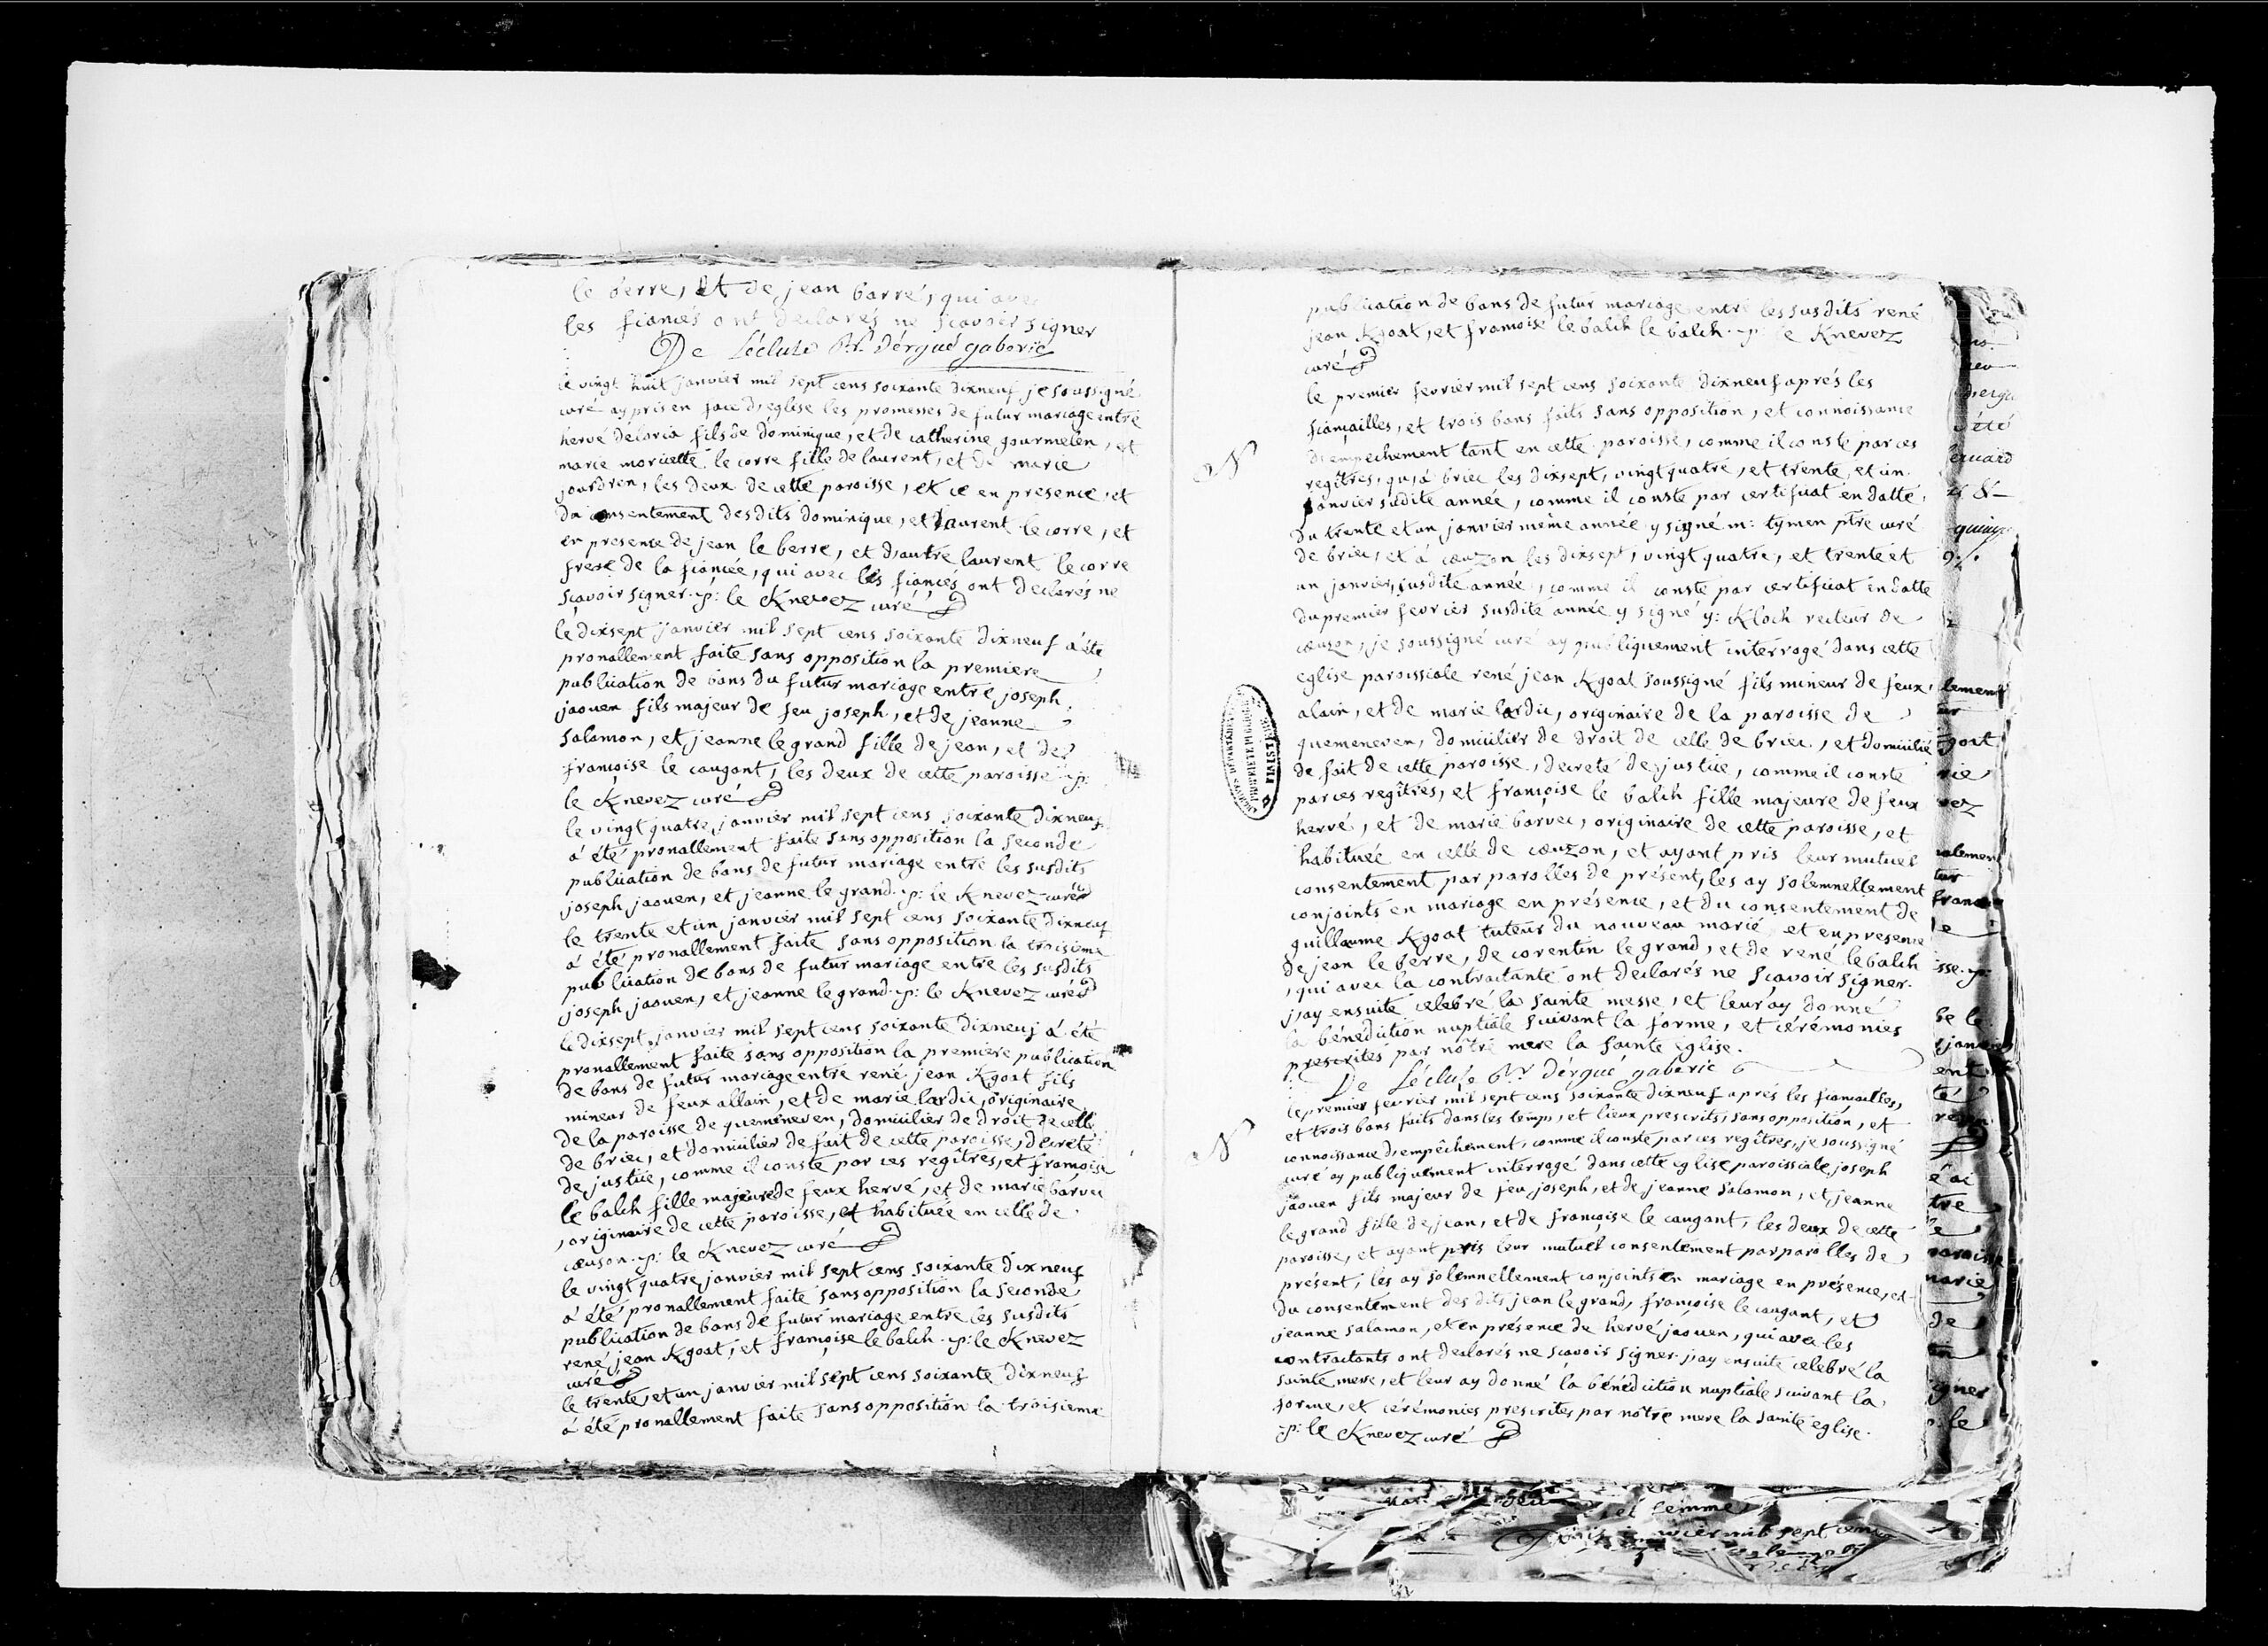 le berre, et de jean barré, qui avec
les fiancés ont declarés ne scavoir signer
De Lécluse Rr. dérgué gaberic
le vingt huit janvier mil sept cens soixante dixneuf je soussigné
curé ay pris en face d'eglise les promesses de futur mariage entre
hervé deloria fils de dominique, et de catherine gourmelen, et
marie moricette le corre fille de laurent, et de marie
jourdren, les deux de cette paroisse, et ce en presence, et
du consentement desdits dominique, et laurent le corre, et
en presence de jean le berre, et d'autre laurent le corre
frere de la fiancée, qui avec les fiancés ont declarés ne
scavoir signer. p: le Knevez curé
le dixsept janvier mil sept cens soixante dixneuf a été
pronallement faite sans opposition la premiere
publication de bans du futur mariage entre joseph
jaouen fils majeur de feu joseph, et de jeanne
salamon, et jeanne le grand fille de jean, et de
françoise le caugant, les deux de cette paroisse p:
le Knevez curé
le vingt quatre janvier mil sept cens soixante dixneuf
a été pronallement faite sans opposition la seconde
publication de bans de futur mariage entre les susdits
joseph jaouen, et jeanne le grand. p: le Knevez curé
le trente et un janvier mil sept cens soixante dixneuf
a été pronallement faite sans opposition la troisieme
publication de bans de futur mariage entre les susdits
joseph jaouen, et jeanne le grand. p: le Knevez curé
le dixsept janvier mil sept cens soixante dixneuf a été
pronallement faite sans opposition la premiere publication
de bans de futur mariage entre rené jean Kgoat fils
mineur de feux allain, et de marie lardic, originaire
de la paroisse de quemeneven, domicilier de droit de celle
de briec, et domicilier de fait de cette paroisse, decreté
de justice, comme il conste par ces regîtres, et françoise
le balch fille majeure de feux hervé, et de marie barvec
, originaire de cette paroisse, et habituée en celle de
cæuson. p: le Knevez curé
le vingt quatre janvier mil sept cens soixante dixneuf
a été pronallement faite sans opposition la seconde
publication de bans de futur mariage entre les susdits
rené jean Kgoat, et françoise le balch. p: le Knevez
curé
le trente, et un janvier mil sept cens soixante dixneuf
a été pronallement faite sans opposition la troisieme
publication de bans de futur mariage entre les susdits rené
jean Kgoat, et françoise le balch le balch. p: le Knevez
curé
le premier fevrier mil sept cens soixante dixneuf aprés les
fiançailles, et trois bans faits sans opposition, et connoissance
d'empechement tant en cette paroisse, comme il conste par ces
regîtres, qu'a briec les dixsept, vingt quatre, et trente, et un
janvier sudite année, comme il conste par certificat en datte
du trente et un janvier même année y signé m: tymen ptre curé
de briec, et à cæuzon les dixsept, vingt quatre, et trente et
un janvier, susdite année, comme il conste par certificat en datte
du premier fevrier susdite année y signé y: Kloch recteur de
cæuzon, je soussigné curé ay publiquement interrogé dans cette
eglise paroissiale rené jean Kgoat soussigné fils mineur de feux
alain, et de marie lardic, originaire de la paroisse de
quemeneven, domicilier de droit de celle de briec, et domicilié
de fait de cette paroisse, decreté de justice, comme il conste
par ces regîtres, et françoise le balch fille majeure de feux
hervé, et de marie barvec, originaire de cette paroisse, et
habituée en celle de cæuzon, et ayant pris leur mutuel
consentement par parolles de présent, les ay solemnellement
conjoints en mariage en présence, et du consentement de
guillaume Kgoat tuteur du nouveau marié, et en presence
de jean le berre, de corentin le grand, et de rené le balch
, qui avec la contractante ont declarés ne scavoir signer.
j'ay ensuite celebré la sainte messe, et leur ay donné
la bénédiction nuptiale suivant la forme, et cérémonies
prescrites par nôtre mere la sainte eglise.
De Lécluse Rr. dérgué gaberic
le premier fevrier mil sept cens soixante dixneuf aprés les fiançailles,
et trois bans faits dans les temps, et lieux prescrits, sans opposition, et
connoissance d'empêchement, comme il conste par ces regîtres, je soussigné
curé ay publiquement interrogé dans cette eglise paroissiale joseph
jaouen fils majeur de feu joseph, et de jeanne salamon, et jeanne
le grand fille de jean, et de françoise le caugant, les deux de cette
paroisse, et ayant pris leur mutuel consentement par parolles de
présent, les ay solemnellement conjoints en mariage en présence, et
du consentement des dits jean le grand, françoise le caugant, et
jeanne salamon, et en présence de hervé jaouen, qui avec les
contractants ont declarés ne scavoir signer. j'ay ensuite celebré la
sainte messe, et leur ay donné la bénédiction nuptiale suivant la
forme, et cérémonies prescrites par nôtre mere la sainte eglise.
p: le Knevez curé
et femme
janvier mil sept cens